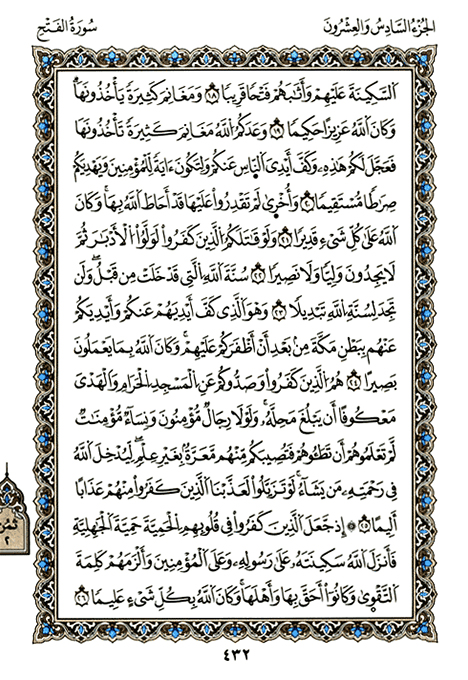 الجُزْءُ السَّادِسُ وَالعِشْرُونَ
سُورَةُ الفَتْحِ
اَلسَّكِينَةَ عَلَيْهِمْ وَأَثَٰبَهُمْ فَتْحًا قَرِيبًا ١٨ وَمَغَانِمَ كَثِيرَةً يَأْخُذُونَهَا
وَكَانَ اَللَّهُ عَزِيزًا حَكِيمًا ١٩ وَعَدَكُمُ اُللَّهُ مَغَانِمَ كَثِيرَةً تَأْخُذُونَهَا
فَعَجَّلَ لَكُمْ هَٰذِهِۦ وَكَفَّ أَيْدِىَ اَلنَّاسِ عَنكُمْ وَلِتَكُونَ ءَايَةً لِّلْمُؤْمِنِينَ وَيَهْدِيَكُمْ
صِرَٰطًا مُّسْتَقِيمًا ٢٠ وَأُخْرَىٰ لَمْ تَقْدِرُواْ عَلَيْهَا قَدْ أَحَاطَ اَللَّهُ بِهَا وَكَانَ
اَللَّهُ عَلَىٰ كُلِّ شَىْءٍ قَدِيرًا ٢١ وَلَوْ قَٰتَلَكُمُ اُلَّذِينَ كَفَرُواْ لَوَلَّوُاْ اُلْأَدْبَٰرَ ثُمَّ
لَا يَجِدُونَ وَلِيًّا وَلَا نَصِيرًا ٢٢ سُنَّةَ اَللَّهِ اِلَّتِى قَدْ خَلَتْ مِن قَبْلُ وَلَن
تَجِدَ لِسُنَّةِ اِللَّهِ تَبْدِيلًا ٢٣ وَهُوَ اَلَّذِى كَفَّ أَيْدِيَهُمْ عَنكُمْ وَأَيْدِيَكُمْ
عَنْهُم بِبَطْنِ مَكَّةَ مِنۢ بَعْدِ أَنْ أَظْفَرَكُمْ عَلَيْهِمْ وَكَانَ اَللَّهُ بِمَا يَعْمَلُونَ
بَصِيرًا ٢٤ هُمُ اُلَّذِينَ كَفَرُواْ وَصَدُّوكُمْ عَنِ اِلْمَسْجِدِ اِلْحَرَامِ وَالْهَدْىَ
مَعْكُوفًا أَن يَبْلُغَ مَحِلَّهُۥ وَلَوْلَا رِجَالٌ مُّؤْمِنُونَ وَنِسَآءٌ مُّؤْمِنَٰتٌ
لَّمْ تَعْلَمُوهُمْ أَن تَطَـُٔوهُمْ فَتُصِيبَكُم مِّنْهُم مَّعَرَّةٌۢ بِغَيْرِ عِلْمٍ لِّيُدْخِلَ اَللَّهُ
فِى رَحْمَتِهِۦ مَن يَشَآءُ لَوْ تَزَيَّلُواْ لَعَذَّبْنَا اَلَّذِينَ كَفَرُواْ مِنْهُمْ عَذَابًا
أَلِيمًا ٢٥ ۞ إِذْ جَعَلَ اَلَّذِينَ كَفَرُواْ فِى قُلُوبِهِمُ اُلْحَمِيَّةَ حَمِيَّةَ اَلْجَٰهِلِيَّةِ
فَأَنزَلَ اَللَّهُ سَكِينَتَهُۥ عَلَىٰ رَسُولِهِۦ وَعَلَى اَلْمُؤْمِنِينَ وَأَلْزَمَهُمْ كَلِمَةَ
اَلتَّقْوَىٰ وَكَانُواْ أَحَقَّ بِهَا وَأَهْلَهَا وَكَانَ اَللَّهُ بِكُلِّ شَىْءٍ عَلِيمًا ٢٦
ثمن
٢
٤٣٢